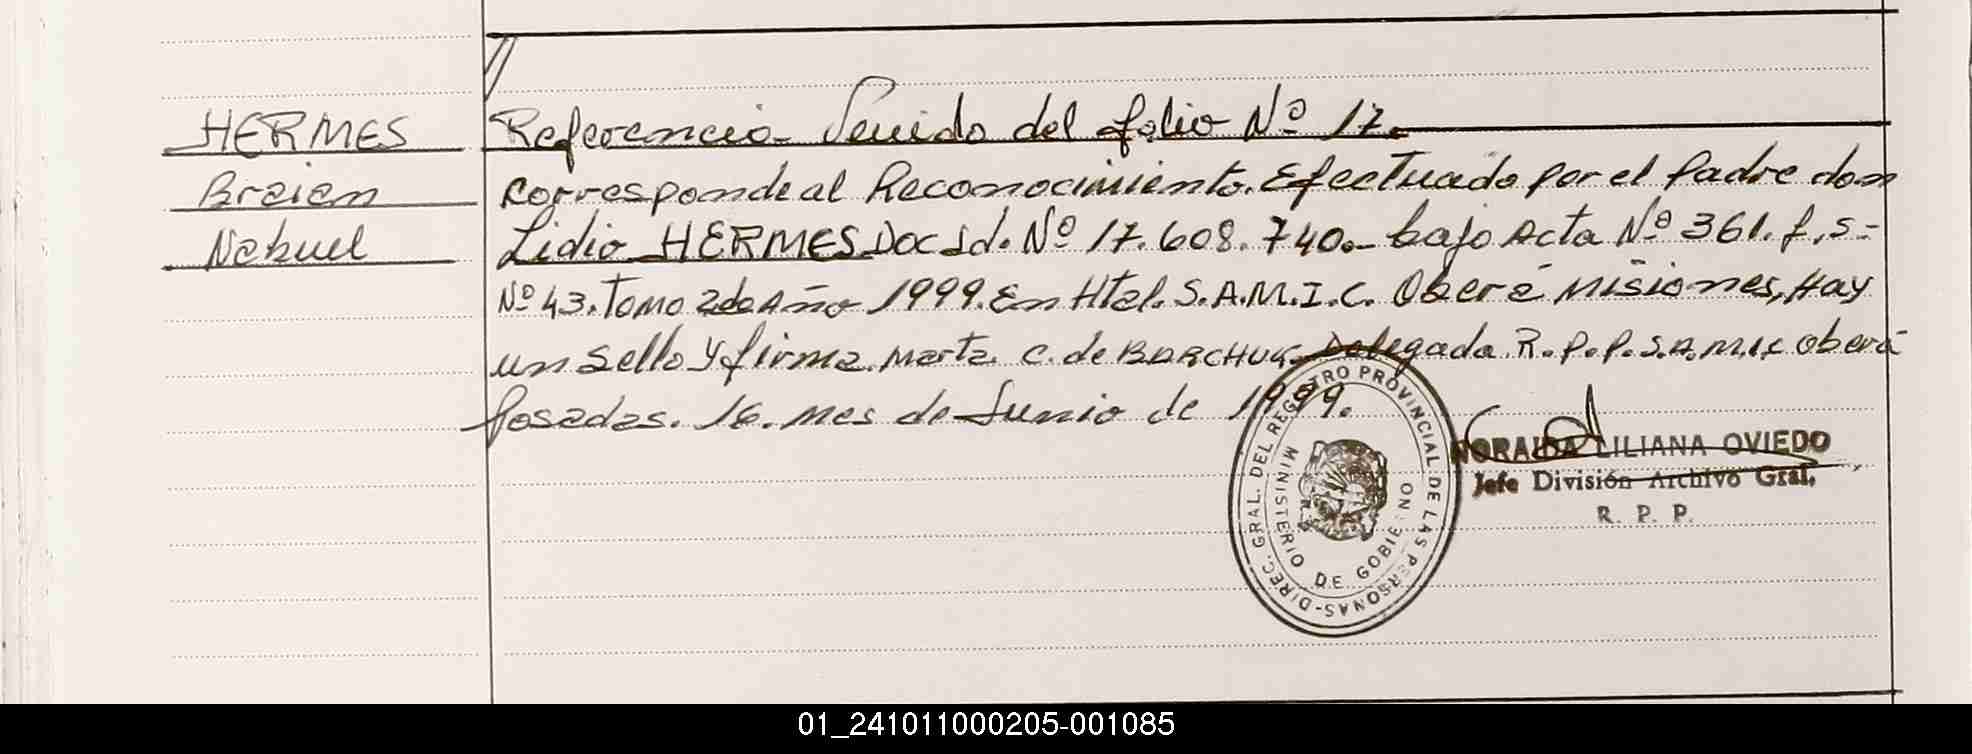 HERMES
Braian
Nahuel
Referencia - Venido del folio Nº 17.
Corresponde al Reconocimiento. Efectuado por el Padre don
Lidio HERMES Doc Id. Nº 17.608.740.- bajo Acta Nº 361. f,s-
Nº 43. Tomo 2do Año 1999. En Htal. S.A.M.I.C. Oberá Misiones, Hay
un sello y firma. Marta. C. de BARCHUK Delegada R.P.P. S.A.M.I.C Oberá
Posadas. 16. mes de Junio de 1999.
DIREC. GRAL. DEL REGISTRO PROVINCIAL DE LAS PERSONAS-
MINISTERIO DE GOBIERNO
NORAIDA LILIANA OVIEDO
Jefe División Archivo Gral.
R. P. P.
01_241011000205-001085